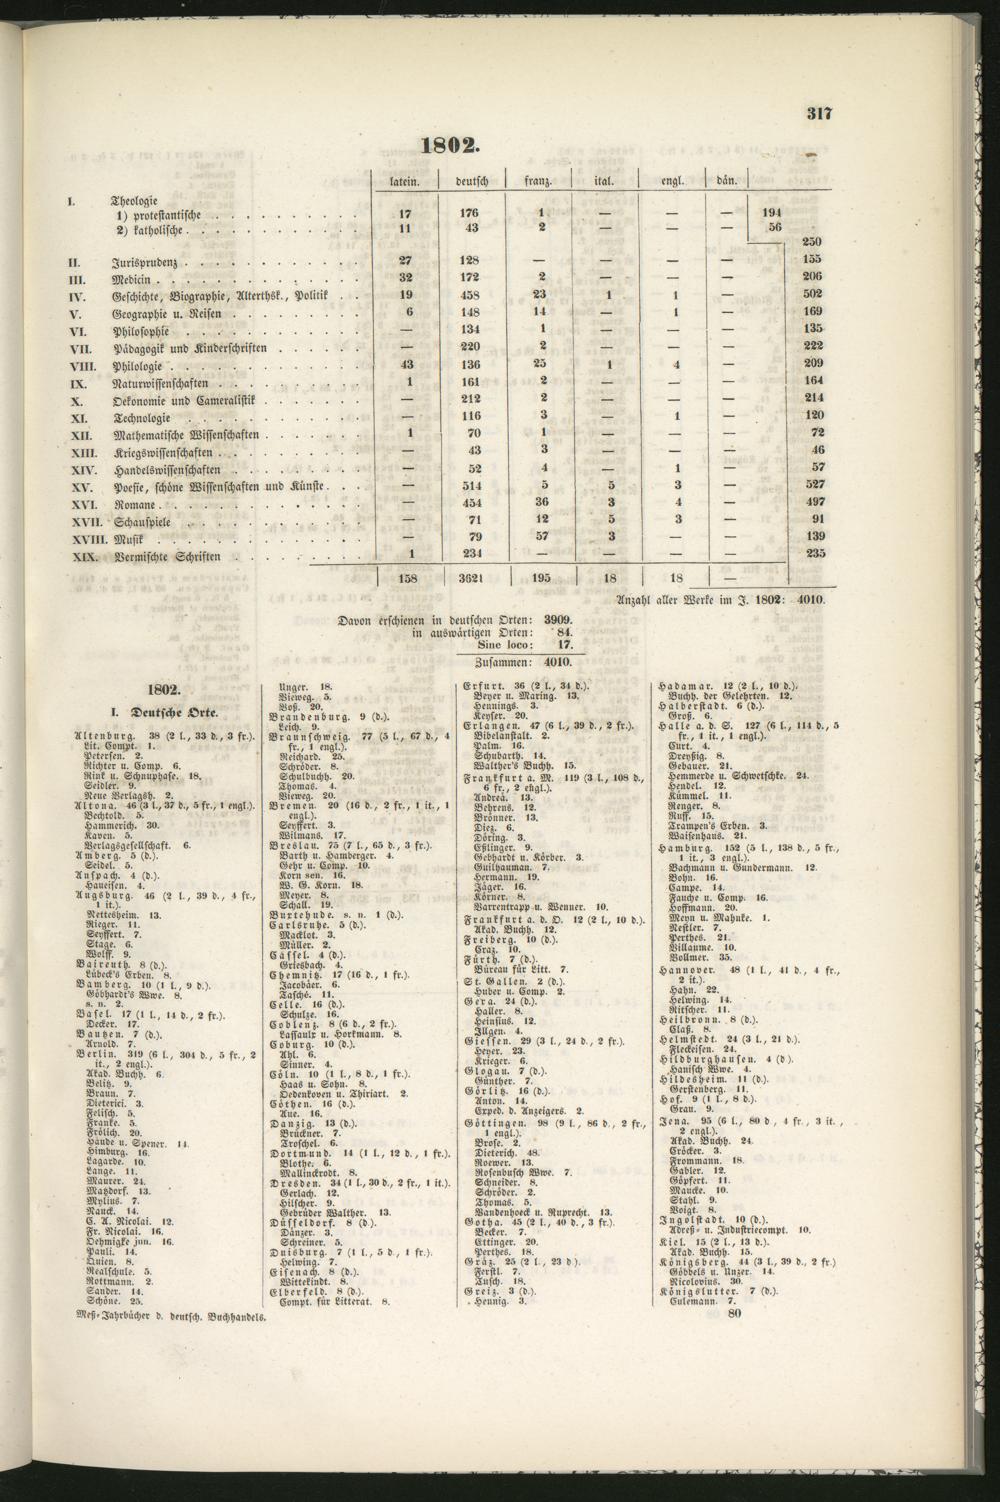 317
1802.
latein. deutsch franz. ital. engl. dän.
I. Theologie
1) protestantische . . . 17 176 1 — — — 194
2) katholische . . . 11 43 2 — — — 56
250
II. Jurisprudenz . . . 27 128 — — — — 155
III. Medicin . . . 32 172 2 — — — 206
IV. Geschichte, Biographie, Alterthsk., Politik . . 19 458 23 1 1 — 502
V. Geographie u. Reisen . . . 6 148 14 — 1 — 169
VI. Philosophie . . . — 134 1 — — — 135
VII. Pädagogik und Kinderschriften . . . — 220 2 — — — 222
VIII. Philologie . . . 43 136 25 1 4 — 209
IX. Naturwissenschaften . . . 1 161 2 — — — 164
X. Oekonomie und Cameralistik . . . — 212 2 — — — 214
XI. Technologie . . . — 116 3 — 1 — 120
XII. Mathematische Wissenschaften . . . 1 70 1 — — — 72
XIII. Kriegswissenschaften . . . — 43 3 — — — 46
XIV. Handelswissenschaften . . . — 52 4 — 1 — 57
XV. Poesie, schöne Wissenschaften und Künste . . . — 514 5 5 3 — 527
XVI. Romane . . . — 454 36 3 4 — 497
XVII. Schauspiele . . . — 71 12 5 3 — 91
XVIII. Musik . . . — 79 57 3 — — 139
XIX. Vermischte Schriften . . . 1 234 — — — — 235
158 3621 195 18 18 —
Anzahl aller Werke im J. 1802: 4010.
Davon erschienen in deutschen Orten: 3909.
in auswärtigen Orten: 84.
Sine loco: 17.
Zusammen: 4010.
1802.
I. Deutsche Orte.
Altenburg. 38 (2 l., 33 d., 3 fr.).
Lit. Compt. 1.
Petersen. 2.
Richter u. Comp. 6.
Rink u. Schnuphase. 18.
Seidler. 9.
Neue Verlagsh. 2.
Altona. 46 (3 l., 37 d., 5 fr., 1 engl.).
Bechtold. 5.
Hammerich. 30.
Kaven. 5.
Verlagsgesellschaft. 6.
Amberg. 5 (d.).
Seidel. 5.
Anspach. 4 (d.).
Haueisen. 4.
Augsburg. 46 (2 l., 39 d., 4 fr.,
1 it.).
Nettesheim. 13.
Rieger. 11.
Seyffert. 7.
Stage. 6.
Wolff. 9.
Baireuth. 8 (d.).
Lübeck's Erben. 8.
Bamberg. 10 (1 l., 9 d.).
Göbhardt's Wwe. 8.
s. n. 2.
Basel. 17 (1 l., 14 d., 2 fr.).
Decker. 17.
Bautzen. 7 (d.).
Arnold. 7.
Berlin. 319 (6 l., 304 d., 5 fr., 2
it., 2 engl.).
Akad. Buchh. 6.
Belitz. 9.
Braun. 7.
Dieterici. 3.
Felisch. 5.
Franke. 5.
Frölich. 20.
Haude u. Spener. 14.
Himburg. 16.
Lagarde. 10.
Lange. 11.
Maurer. 24.
Matzdorf. 13.
Mylius. 7.
Nauck. 14.
C. A. Nicolai. 12.
Fr. Nicolai. 16.
Oehmigke jun. 16.
Pauli. 14.
Quien. 8.
Realschule. 5.
Rottmann. 2.
Sander. 14.
Schöne. 25.
Unger. 18.
Vieweg. 5.
Voß. 20.
Brandenburg. 9 (d.).
Leich. 9.
Braunschweig. 77 (5 l., 67 d., 4
fr., 1 engl.).
Reichard. 25.
Schröder. 8.
Schulbuchh. 20.
Thomas. 4.
Vieweg. 20.
Bremen. 20 (16 d., 2 fr., 1 it., 1
engl.).
Seyffert. 3.
Wilmans. 17.
Breslau. 75 (7 l., 65 d., 3 fr.).
Barth u. Hamberger. 4.
Gehr u. Comp. 10.
Korn sen. 16.
W. G. Korn. 18.
Meyer. 8.
Schall. 19.
Buxtehude. s. n. 1 (d.).
Carlsruhe. 5 (d.).
Macklot. 3.
Müller. 2.
Cassel. 4 (d.).
Griesbach. 4.
Chemnitz. 17 (16 d., 1 fr.).
Jacobäer. 6.
Tasché. 11.
Celle. 16 (d.).
Schulze. 16.
Coblenz. 8 (6 d., 2 fr.).
Lassaulx u. Horkmann. 8.
Coburg. 10 (d.).
Ahl. 6.
Sinner. 4.
Cöln. 10 (1 l., 8 d., 1 fr.).
Haas u. Sohn. 8.
Oedenkoven u. Thiriart. 2.
Cöthen. 16 (d.).
Aue. 16.
Danzig. 13 (d.).
Brückner. 7.
Troschel. 6.
Dortmund. 14 (1 l., 12 d., 1 fr.).
Blothe. 6.
Mallinckrodt. 8.
Dresden. 34 (1 l., 30 d., 2 fr., 1 it.).
Gerlach. 12.
Hilscher. 9.
Gebrüder Walther. 13.
Düsseldorf. 8 (d.).
Dänzer. 3.
Schreiner. 5.
Duisburg. 7 (1 l., 5 d., 1 fr.).
Helwing. 7.
Eisenach. 8 (d.).
Wittekindt. 8.
Elberfeld. 8 (d.).
Compt. für Litterat. 8.
Erfurt. 36 (2 l., 34 d.).
Beyer u. Maring. 13.
Hennings. 3.
Keyser. 20.
Erlangen. 47 (6 l., 39 d., 2 fr.).
Bibelanstalt. 2.
Palm. 16.
Schubarth. 14.
Walther's Buchh. 15.
Frankfurt a. M. 119 (3 l., 108 d.,
6 fr., 2 engl.).
Andreä. 13.
Behrens. 12.
Brönner. 13.
Diez. 6.
Döring. 3.
Eßlinger. 9.
Gebhardt u. Körber. 3.
Guilhauman. 7.
Hermann. 19.
Jäger. 16.
Körner. 8.
Varrentrapp u. Wenner. 10.
Frankfurt a. d. O. 12 (2 l., 10 d.).
Akad. Buchh. 12.
Freiberg. 10 (d.).
Craz. 10.
Fürth. 7 (d.).
Büreau für Litt. 7.
St. Gallen. 2 (d.).
Huber u. Comp. 2.
Gera. 24 (d.).
Haller. 8.
Heinsius. 12.
Illgen. 4.
Giessen. 29 (3 l., 24 d., 2 fr.).
Heyer. 23.
Krieger. 6.
Glogau. 7 (d.).
Günther. 7.
Görlitz. 16 (d.).
Anton. 14.
Exped. d. Anzeigers. 2.
Göttingen. 98 (9 l., 86 d., 2 fr.,
1 engl.).
Brose. 2.
Dieterich. 48.
Roewer. 13.
Rosenbusch Wwe. 7.
Schneider. 8.
Schröder. 2.
Thomas. 5.
Vandenhoeck u. Ruprecht. 13.
Gotha. 45 (2 l., 40 d., 3 fr.).
Becker. 7.
Ettinger. 20.
Perthes. 18.
Gräz. 25 (2 l., 23 d).
Ferstl. 7.
Tusch. 18.
Greiz. 3 (d.).
Hennig. 3.
Hadamar. 12 (2 l., 10 d.).
Buchh. der Gelehrten. 12.
Halberstadt. 6 (d.).
Groß. 6.
Halle a. d. S. 127 (6 l., 114 d., 5
fr., 1 it., 1 engl.).
Curt. 4.
Dreyßig. 8.
Gebauer. 21.
Hemmerde u. Schwetschke. 24.
Hendel. 12.
Kümmel. 11.
Renger. 8.
Ruff. 15.
Trampen's Erben. 3.
Waisenhaus. 21.
Hamburg. 152 (5 l., 138 d., 5 fr.,
1 it., 3 engl.).
Bachmann u. Gundermann. 12.
Bohn. 16.
Campe. 14.
Fauche u. Comp. 16.
Hoffmann. 20.
Meyn u. Mahnke. 1.
Nestler. 7.
Perthes. 21.
Villaume. 10.
Vollmer. 35.
Hannover. 48 (1 l., 41 d., 4 fr.,
2 it.).
Hahn. 22.
Helwing. 14.
Ritscher. 11.
Heilbronn. 8 (d.).
Claß. 8.
Helmstedt. 24 (3 l., 21 d.).
Fleckeisen. 24.
Hildburghausen. 4 (d.).
Hanisch Wwe. 4.
Hildesheim. 11 (d.).
Gerstenberg. 11.
Hof. 9 (1 l., 8 d.).
Grau. 9.
Jena. 95 (6 l., 80 d., 4 fr., 3 it.,
2 engl.).
Akad. Buchh. 24.
Cröcker. 3.
Frommann. 18.
Gabler. 12.
Göpfert. 11.
Maucke. 10.
Stahl. 9.
Voigt. 8.
Ingolstadt. 10 (d.).
Adreß- u. Industriecompt. 10.
Kiel. 15 (2 l., 13 d.).
Akad. Buchh. 15.
Königsberg. 44 (3 l., 39 d., 2 fr.)
Göbbels u. Unzer. 14.
Nicolovius. 30.
Königslutter. 7 (d.).
Culemann. 7.
Meß-Jahrbücher d. deutsch. Buchhandels.
80